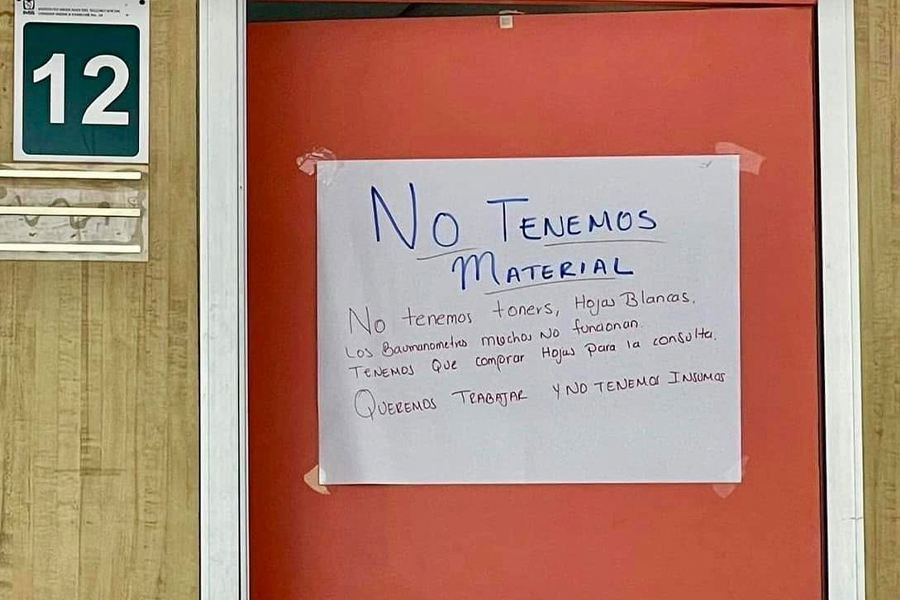 INSTITUTO MEXICANO DEL SEGURO SOCIAL
12
No Tenemos
Material
No tenemos toners, Hojas Blancas.
Los Baumanometros muchos No funcionan.
TENEMOS Que comprar Hojas para la consulta.
QUEREMOS TRABAJAR Y NO TENEMOS INSUMOS